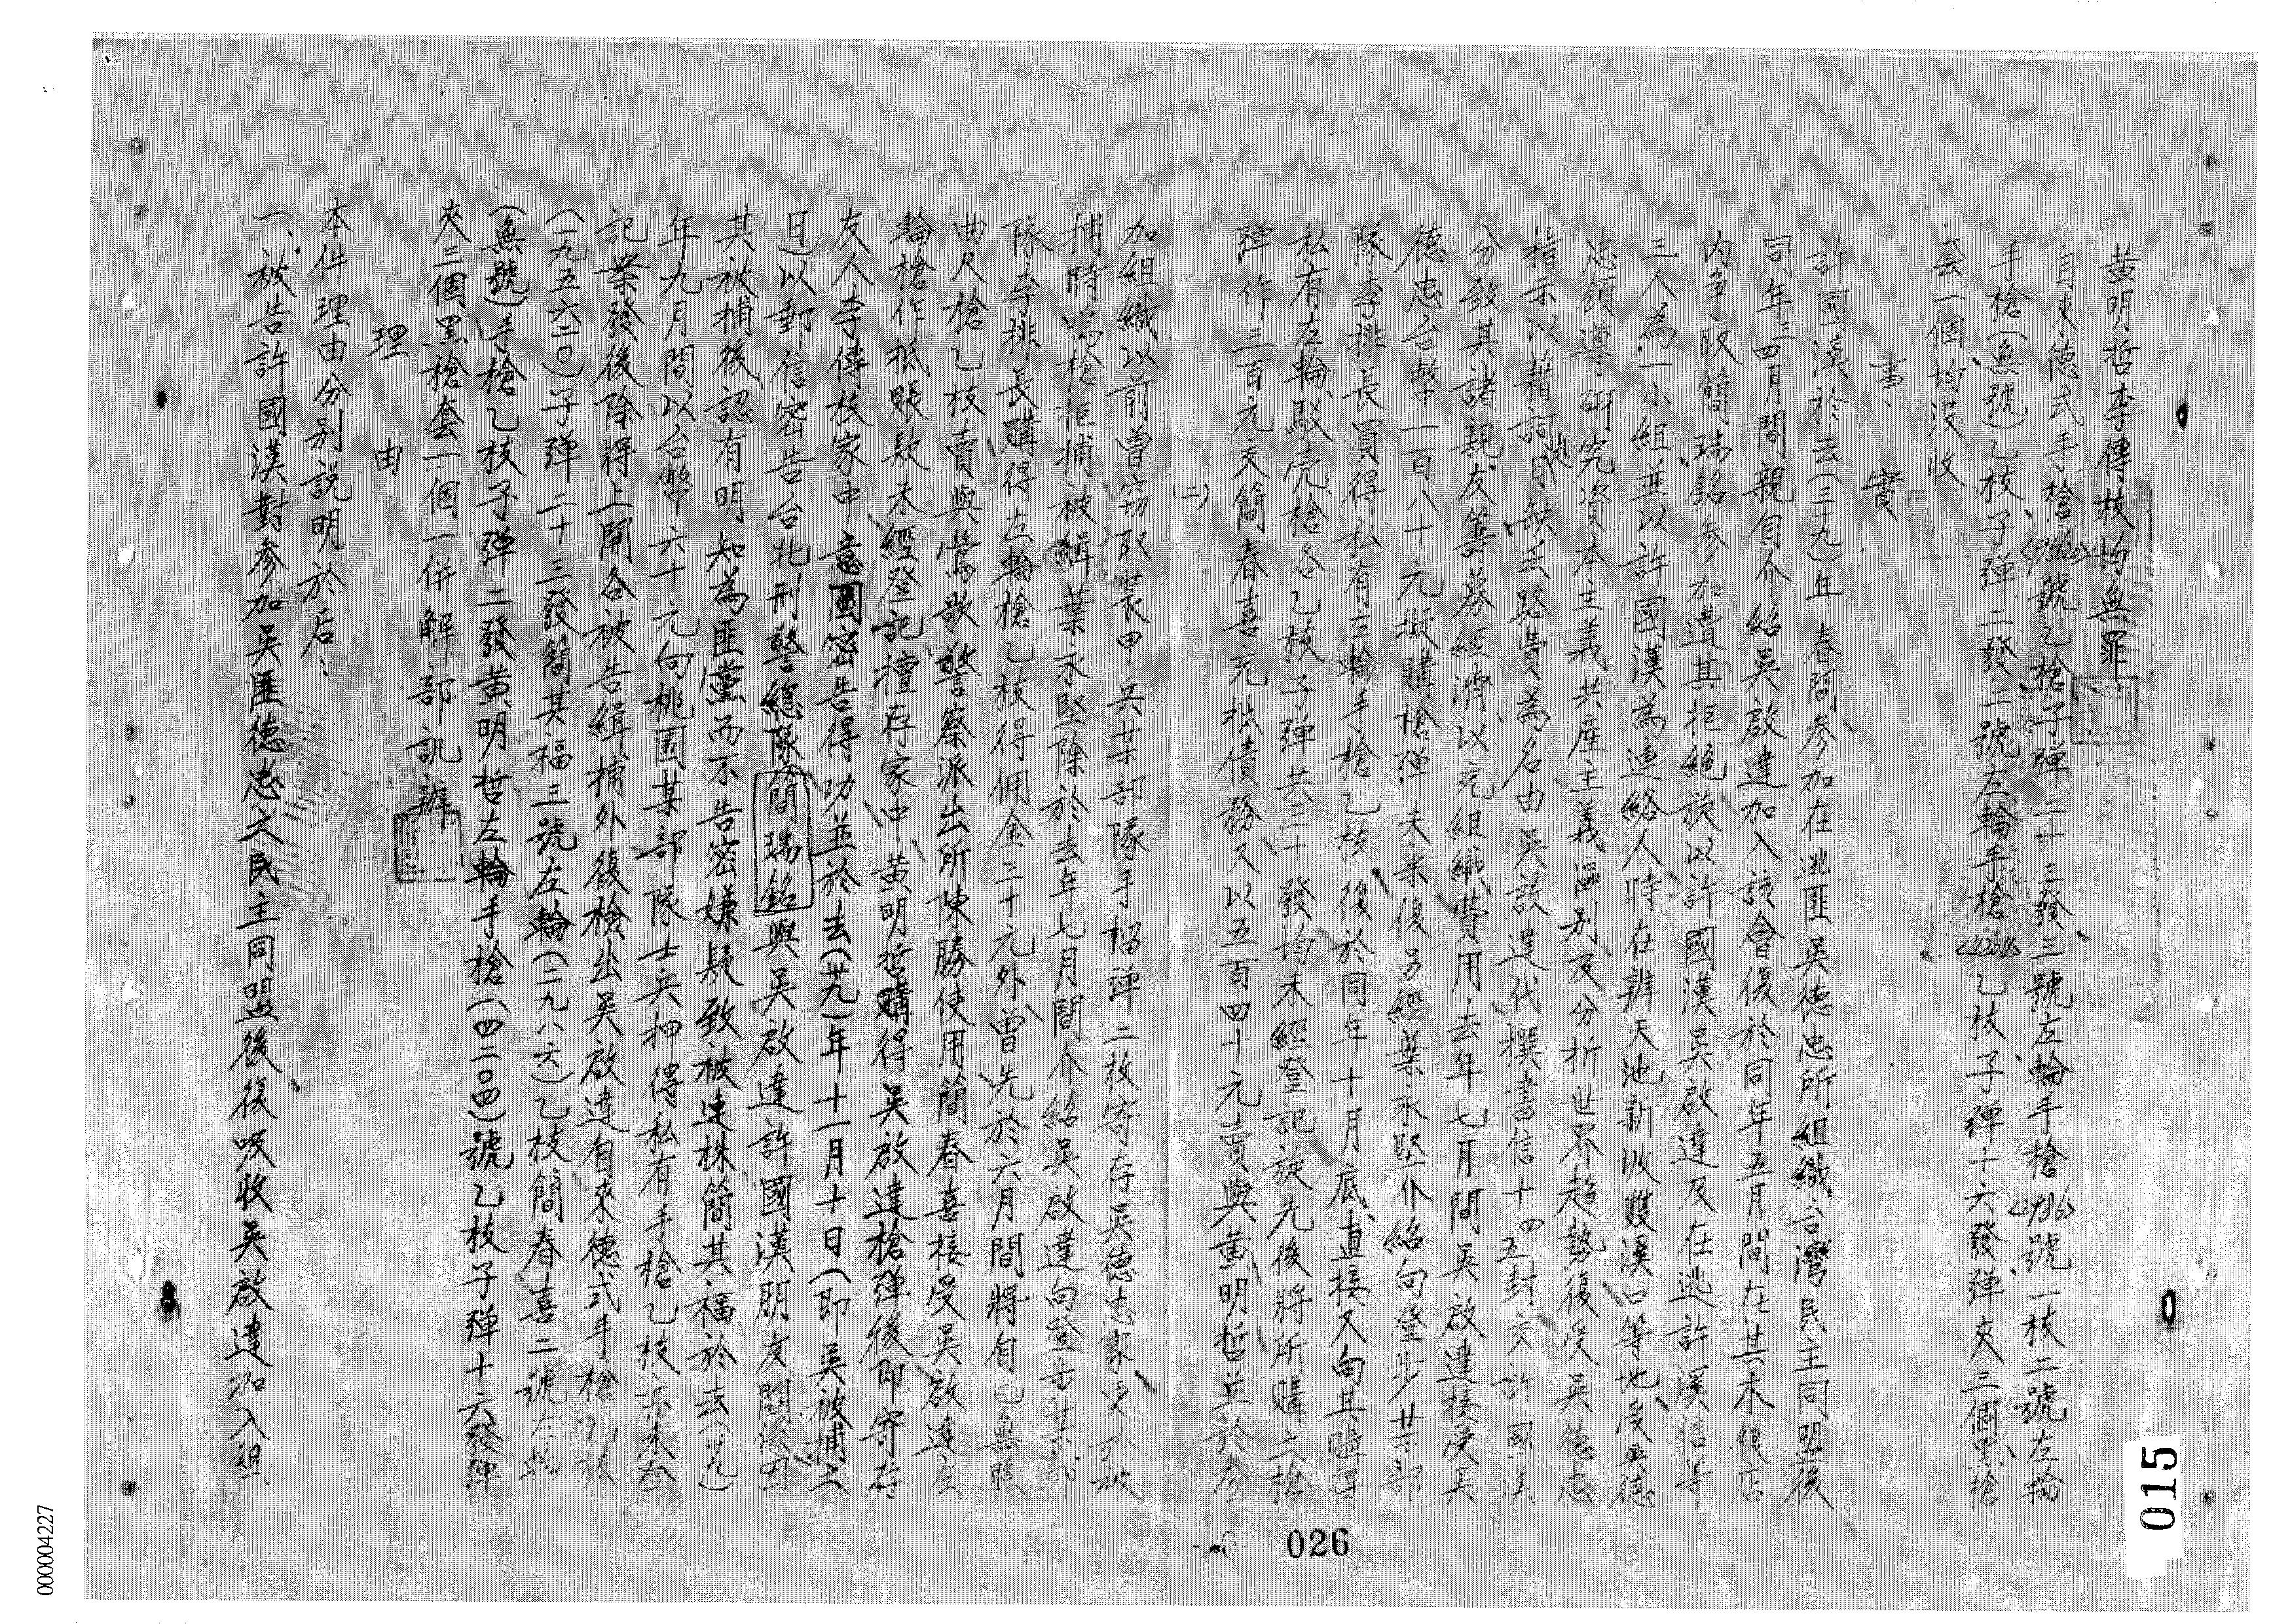 黃明哲李傳枝均無罪
自來德式手槍號乙槍子彈二十三發三號左輪手槍號一枝二號左輪
手槍(無號)乙枝子彈二發二號左輪手槍乙枝子彈十六發彈夾三個黑槍
套一個均沒收
事實
許國漢於去(三九)年春間參加在逃匪吳德忠所組織台灣民主同盟後
同年三四月間親自介紹吳啟達加入該會後於同年五月間在其木俱店
內爭取簡瑞銘參加遭其拒絕旋以許國漢吳啟達及在逃許溪信等
三人為一小組並以許國漢為連絡人時在辨天池新坡雙溪口等地受吳德
忠領導研究資本主義共産主義區別及分析世界趨勢復受吳德忠
指示以藉詞缺乏路費為名由吳啟達代撰書信十四五封交許國漢
分致其諸親友籌募經濟以充組織費用去年七月間吳啟達接受吳
德忠台幣一百八十元擬購槍彈未果復另經葉永堅介紹向登步某部
隊李排長買得私有左輪手槍乙枝後於同年十月底直接又向其購得
私有左輪駁壳槍各乙枝子彈共三十發均未經登記旋先後將所購之槍
彈作三百元交簡春喜充抵債務又以五百四十元賣與黃明哲並於參
(二)
加組織以前曾竊取裝甲兵某部隊手榴彈二枚寄存吳德忠家
捕時鳴槍拒捕被緝葉永堅除於去年七月間介紹吳啟達向登步某部
隊李排長購得左輪槍乙枝得佣金三十元外曾先於六月間將自己無照
曲尺槍乙枝賣與鶯歌警察派出所陳勝使用簡春喜接受吳啟達左
輪槍作抵賬欵未經登記擅存家中黃明哲購得吳啟達槍彈後即寄存
友人李傳枝家中意圖密告得功並於去(卅九)年十一月十日(即吳被捕之
日)以郵信密告台北刑警總隊簡瑞銘與吳啟達許國漢朋友關係因
其被捕後認有明知為匪黨而不告密嫌疑致被連株簡其福於去(卅九)
年九月間以台幣六十元向桃園某部隊士兵押得私有手槍乙枝亦未登
記案發後除將上開各被告緝捕外復檢出吳啟達自來德式手槍乙枝
(一九五六二〇)子彈二十三發簡其福三號左輪(二九八六)乙枝簡春喜二號左輪
(無號)手槍乙枝子彈二發黃明哲左輪手槍(四二〇四)號乙枝子彈十六發彈
夾三個黑槍套一個一併解部訊辦
理由
本件理由分別說明於后:
一、被告許國漢對參加吳匪德忠之民主同盟後復吸收吳啟達加入組
026
015
000004227